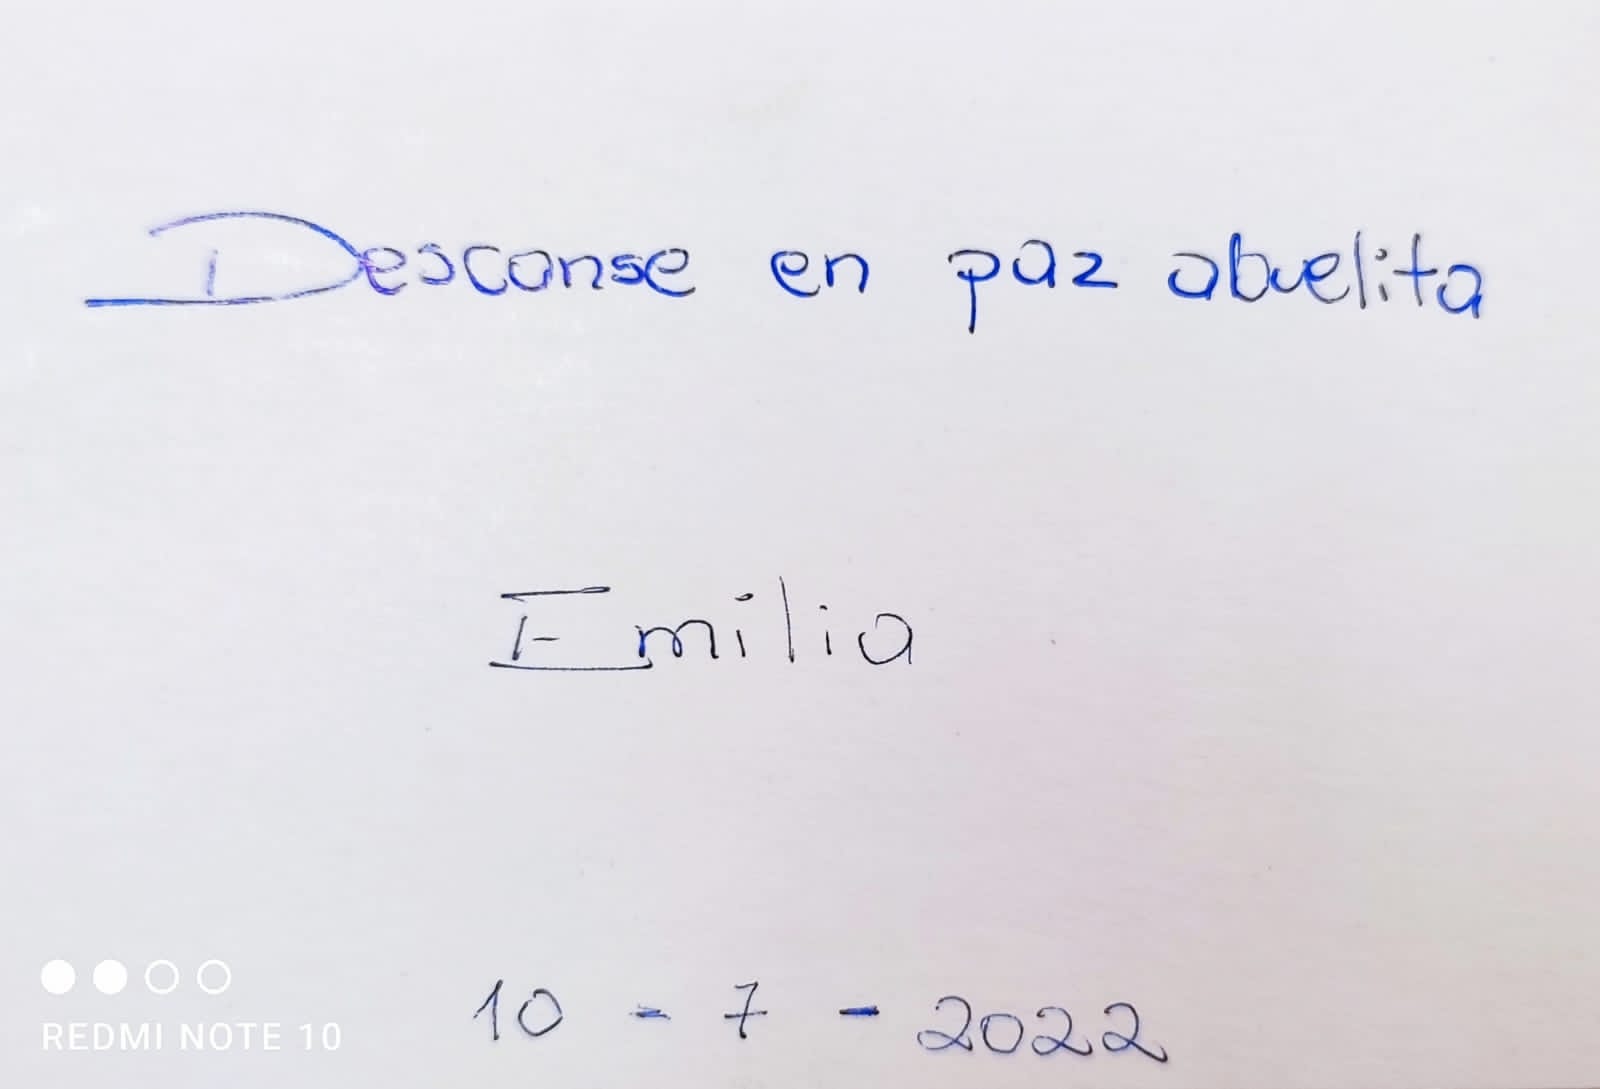 Descanse en paz abuelita
Emilia
10 - 7 - 2022
REDMI NOTE 10